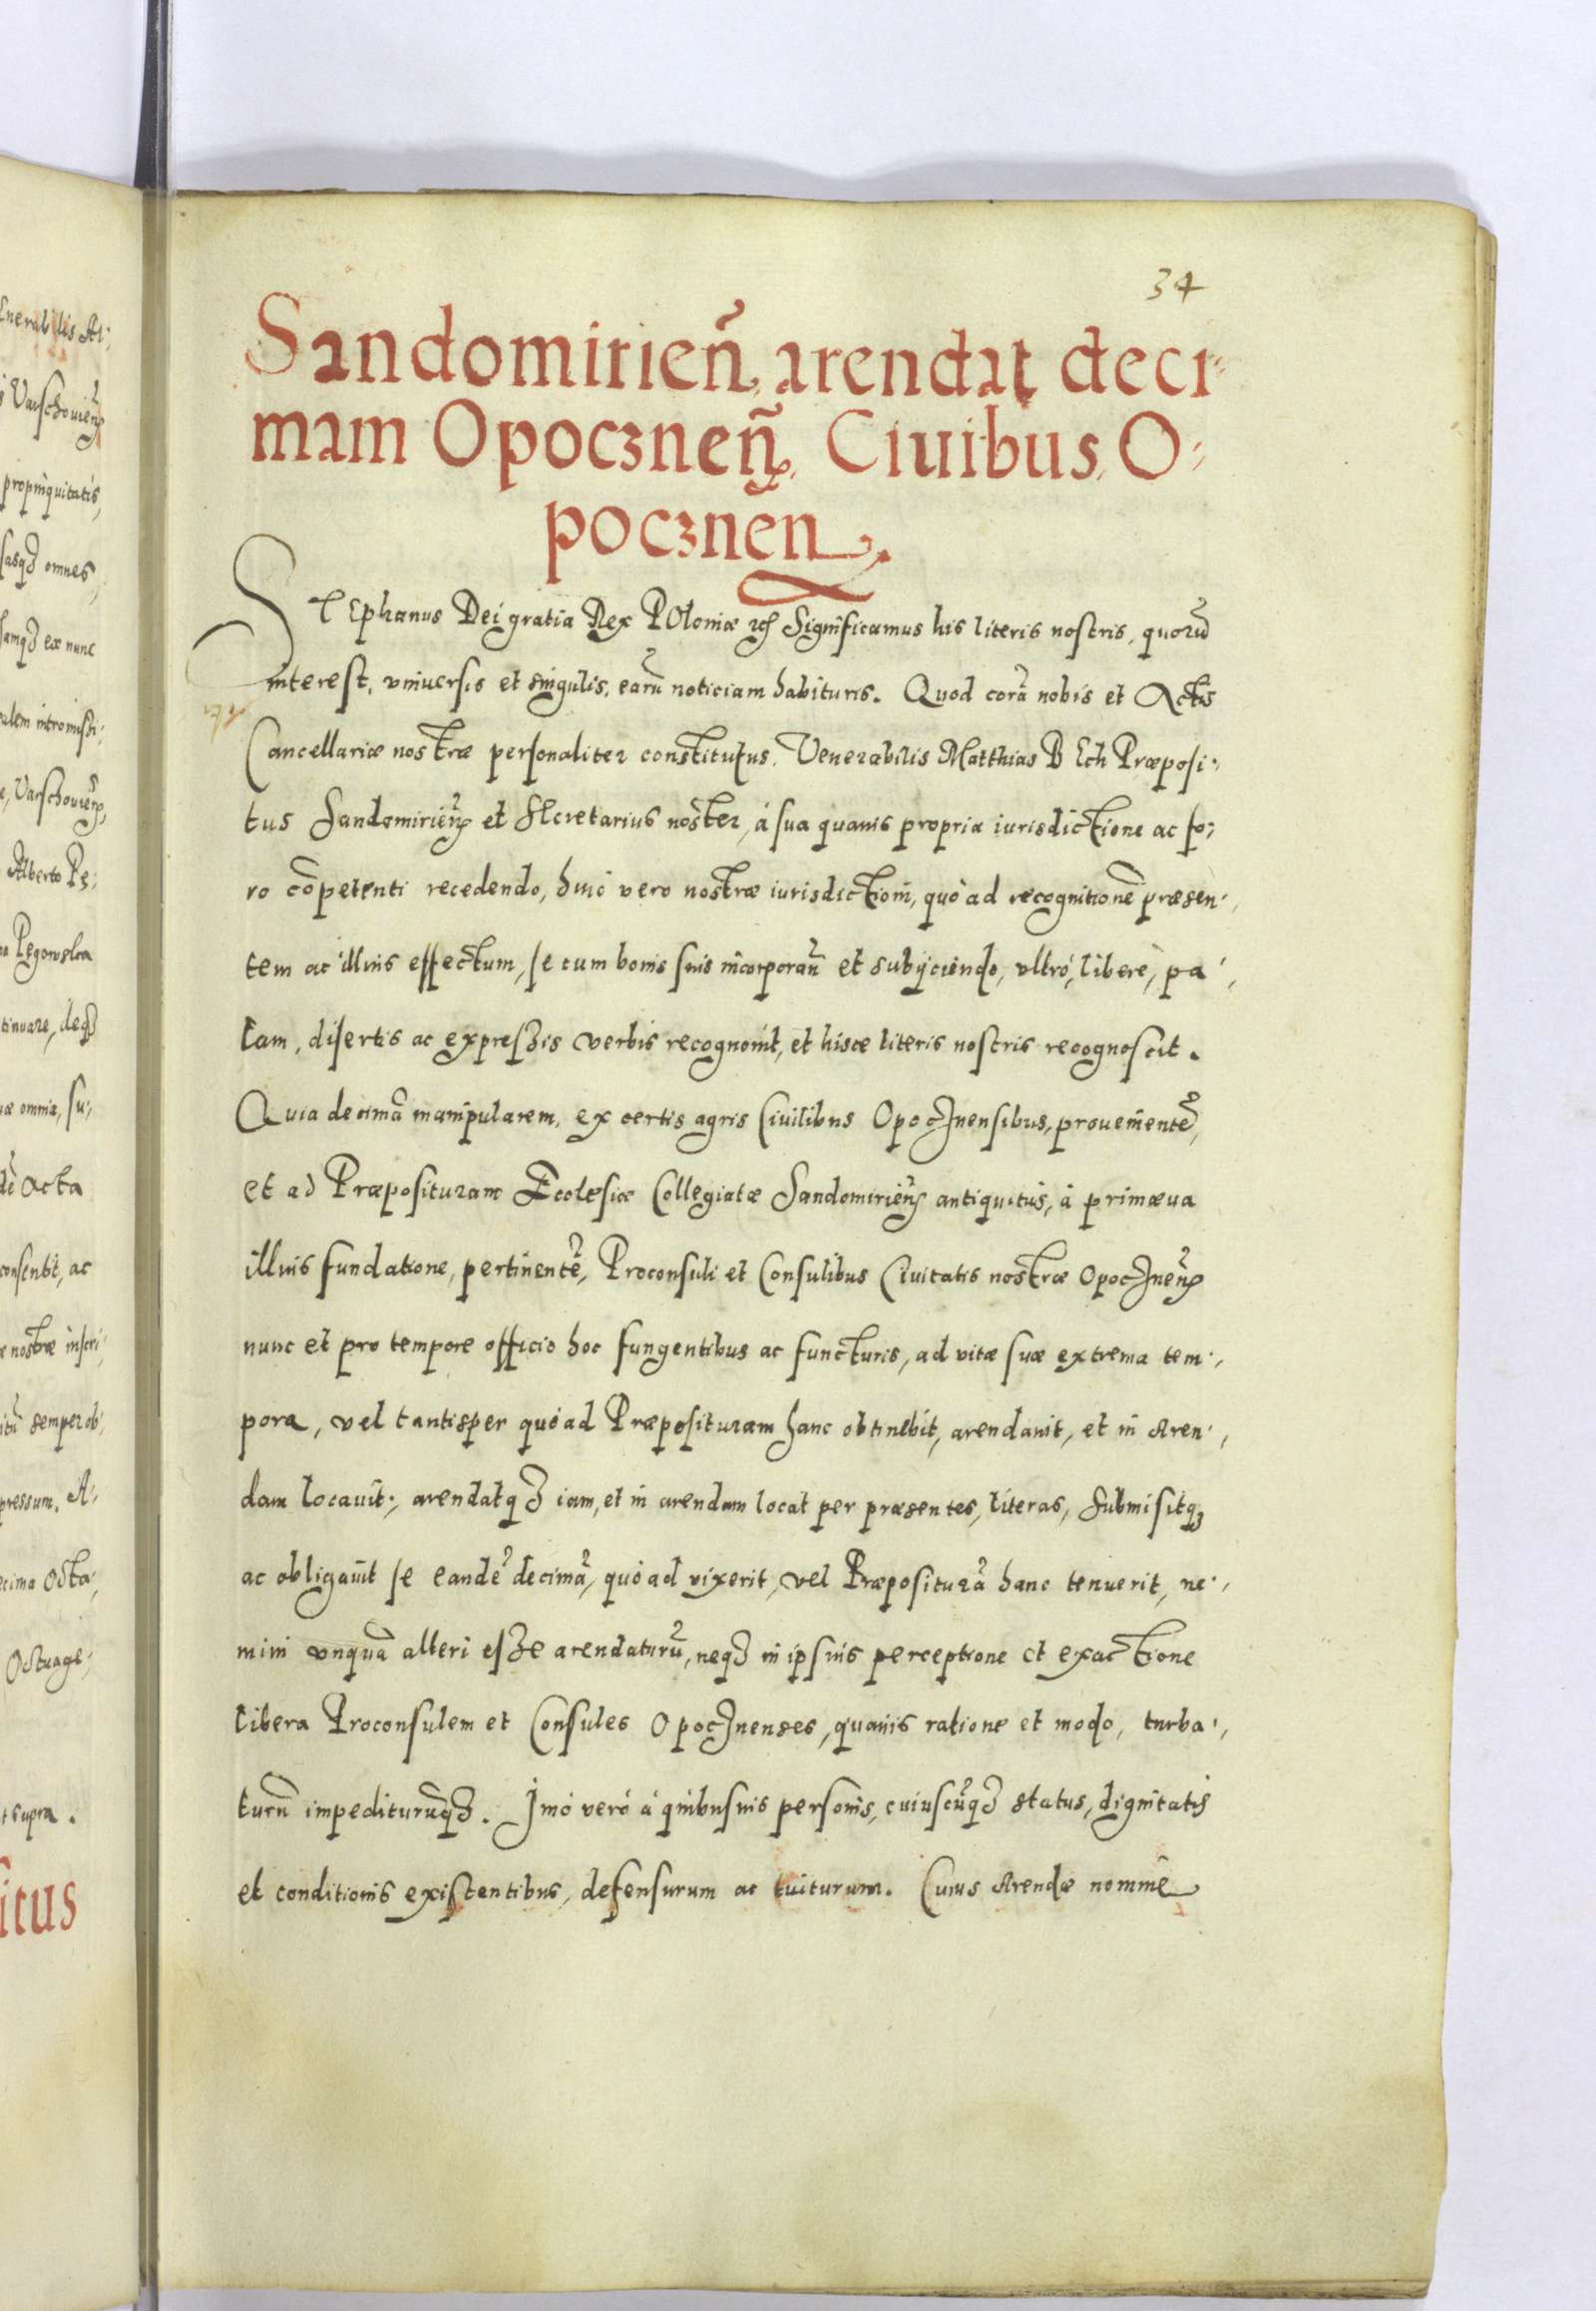 34
Sandomirień. arendat deci-
mam Opoczneń. Ciuibus, O-
poczneń.
STEphanus Dei gratia Rex POloniæ etc̃ Significamus his literis nostris, quorũ
interest, vniuersis et singulis, earũ noticiam habituris. Quod corã nobis et Actis
Cancellariæ nostræ personaliter constitutus. Venerabilis Matthias BEch Præposi-
tus Sandomirieñ et SEcretarius noster, à sua quauis propria iurisdictione ac fo-
ro cõpetenti recedendo, huic vero nostræ iurisdictioni, quò ad recognitionẽ præsen-
tem ac illius effectum, se cum bonis suis incorporañ et subijciendo, vltrò, liberè, pa-
lam, disertis ac expreszis verbis recognouit, et hisce literis nostris recognoscit.
Quia decimã manipularem, ex certis agris Ciuilibus Opocznensibus, prouenientẽ,
et ad Præposituram Ecclesiæ Collegiatæ Sandomirieñ antiquitùs, à primæua
illius fundatione, pertinentẽ, Proconsuli et Consulibus Ciuitatis nostræ Opoczneñ
nunc et pro tempore officio hoc fungentibus ac functuris, ad vitæ suæ extrema tem-
pora, vel tantisper quò ad Præposituram hanc obtinebit, arendauit, et in Aren-
dam locauit, arendatq3 iam, et in arendam locat per præsentes, literas, Submisitq3
ac obligauit se eandẽ decimã, quò ad vixerit, vel Præpositurã hanc tenuerit, ne-
mini vnquã alteri esze arendaturũ, neq3 in ipsius perceptione et exactione
libera Proconsulem et Consules Opocznenses, quauis ratione et modo, turba-
turũ impediturũq3. Imò verò à quibusuis personis, cuiuscũq3 status, dignitatis
et conditionis existentibus, defensurum ac tuiturum. Cuius Arendæ nominẽ